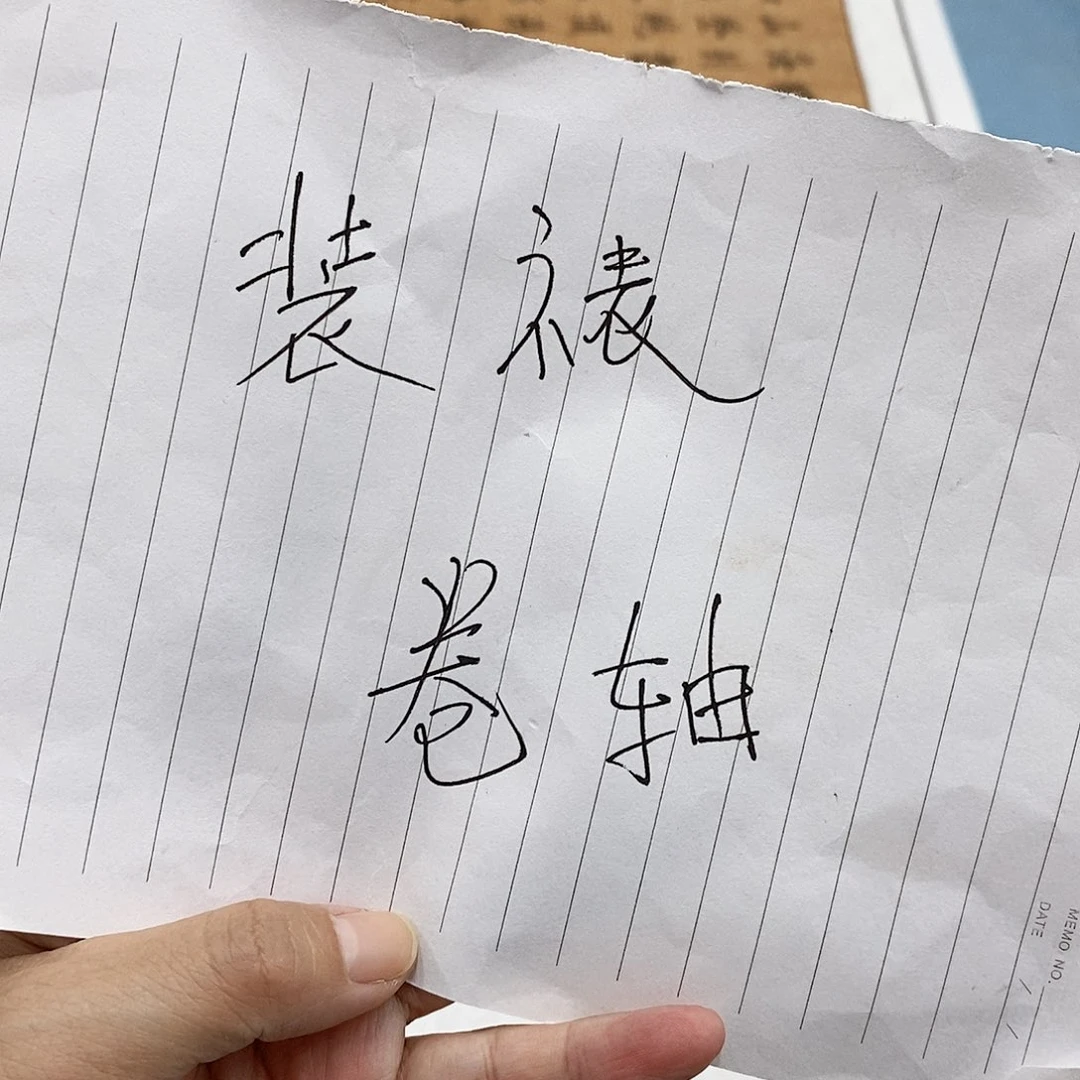 装裱
卷轴
MEMO NO.
DATE / /